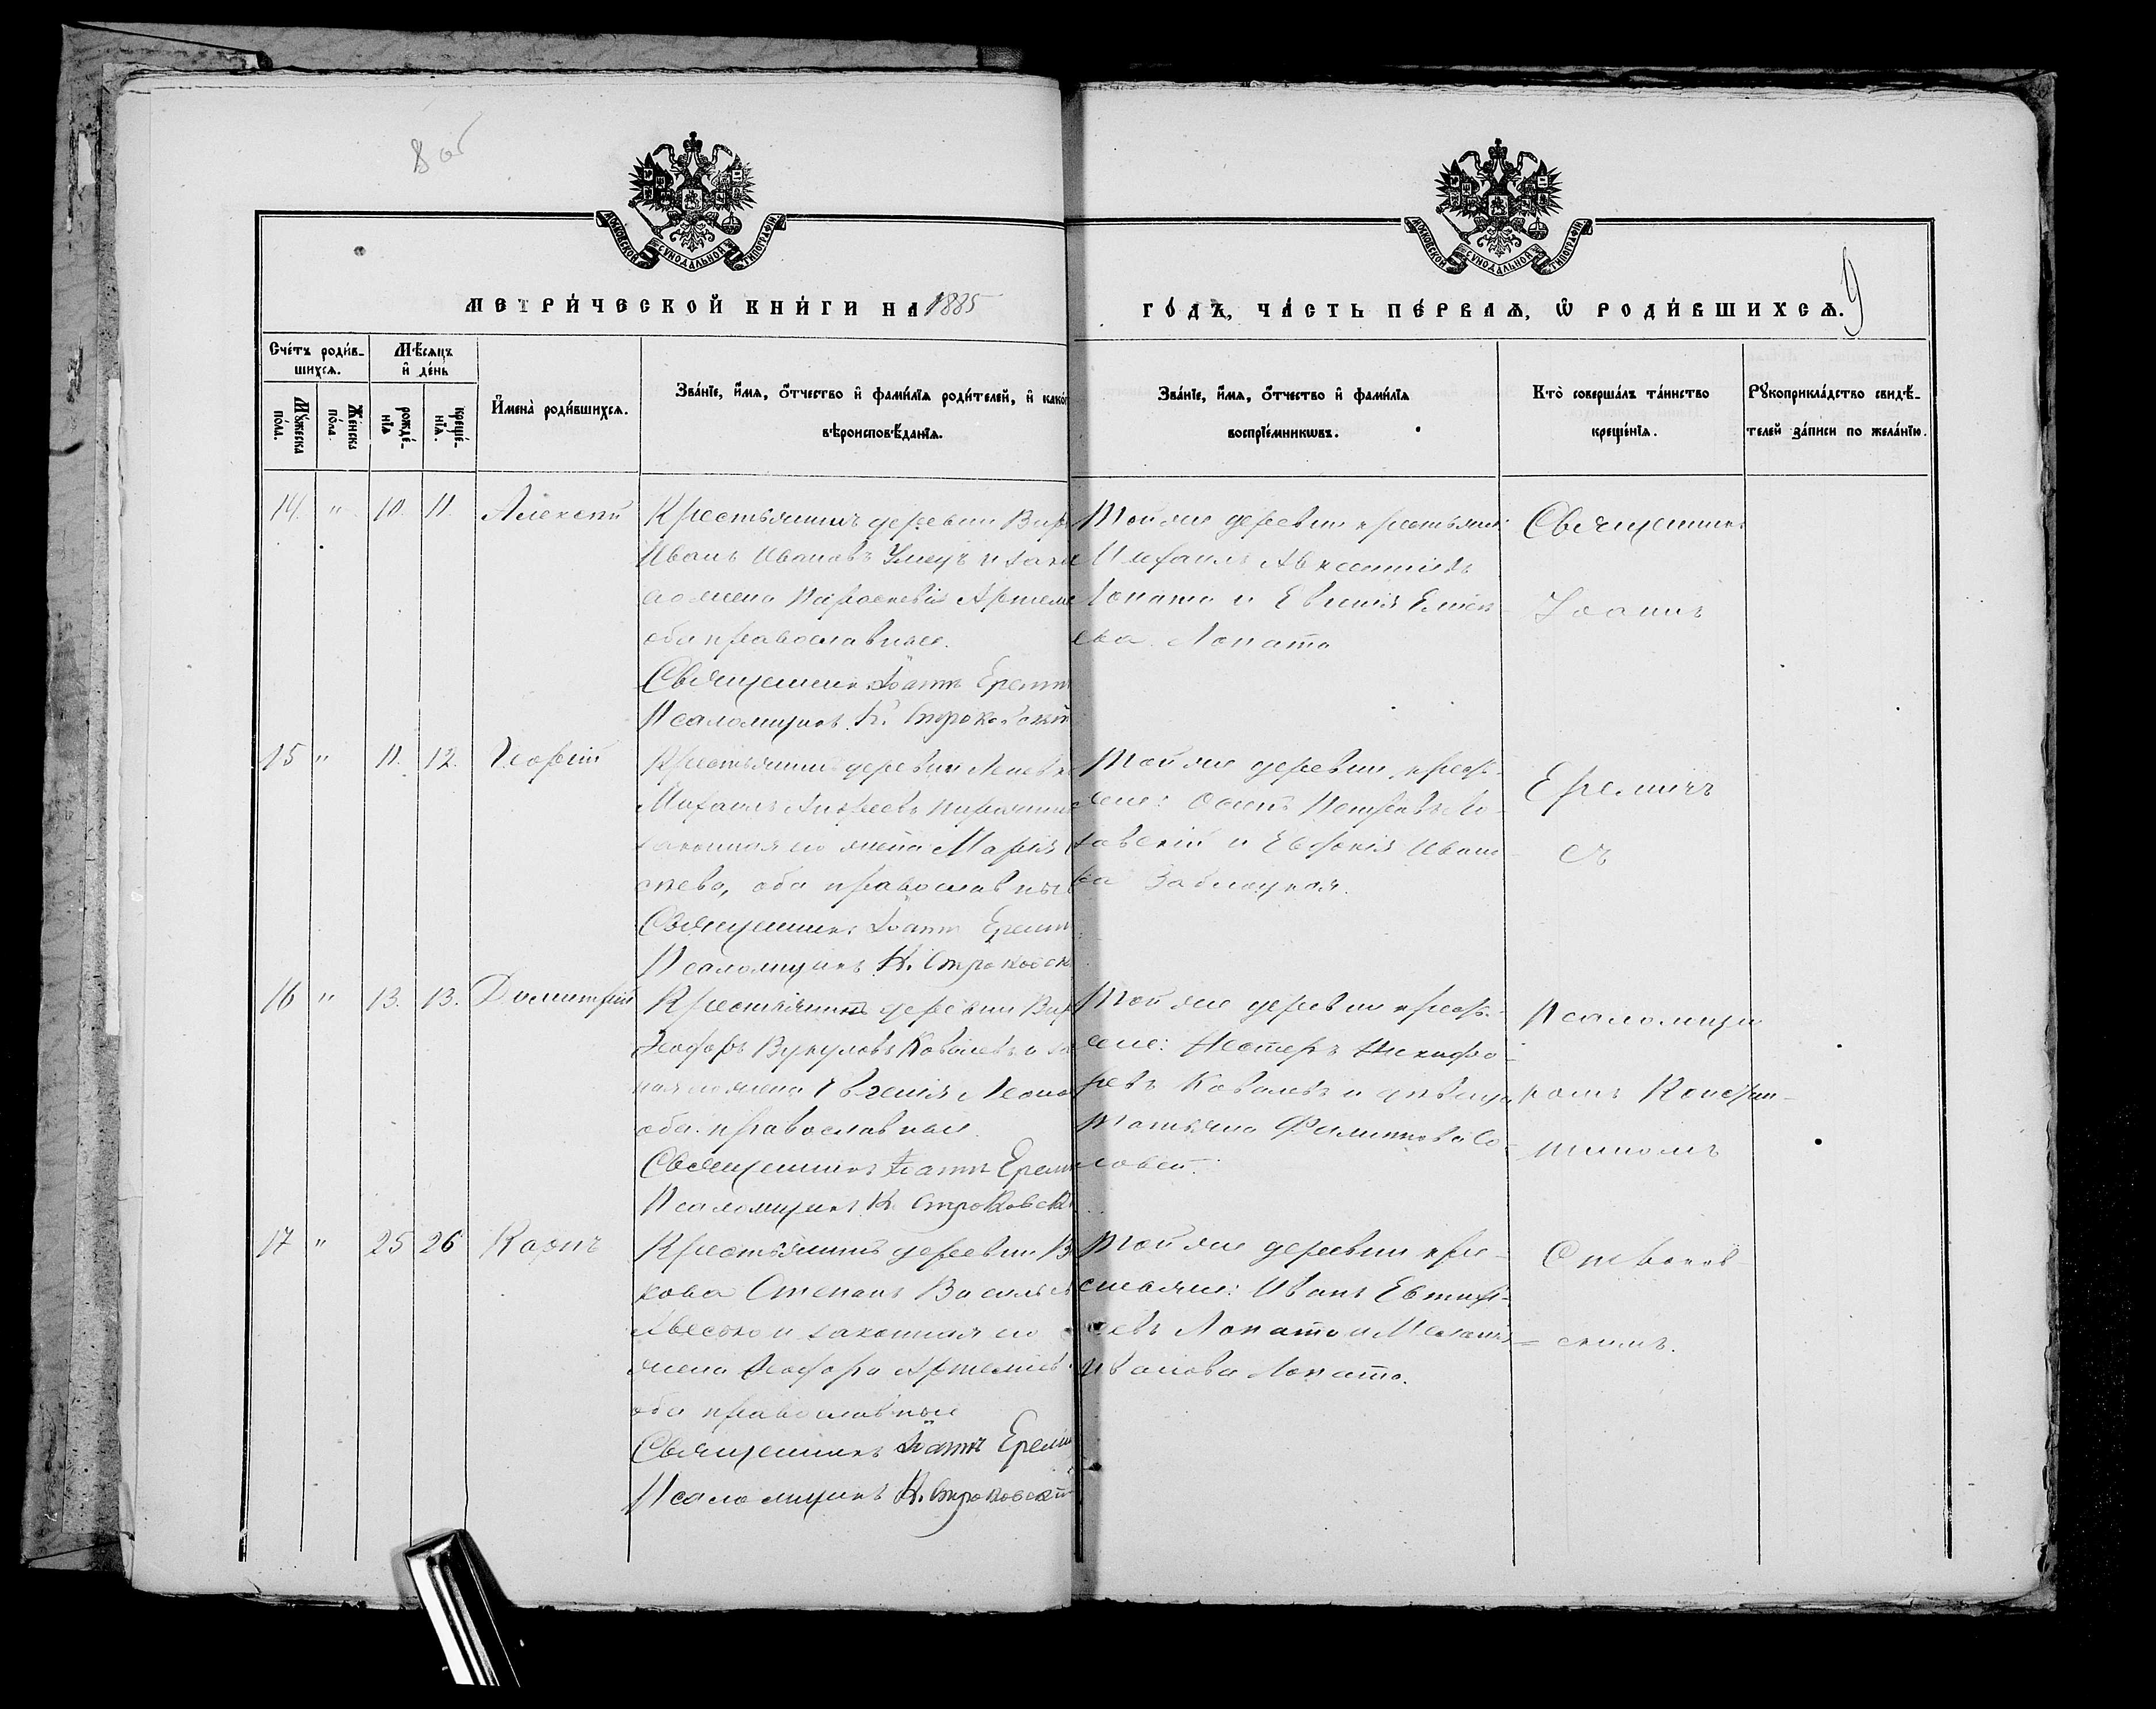 8 об
МОСКОВСКОЙ СѴНОДАЛЬНОЙ ТИПОГРАФІИ
МОСКОВСКОЙ СѴНОДАЛЬНОЙ ТИПОГРАФІИ
МЕТРИ́ЧЕСКОЙ КНИ́ГИ НА 1885
ГО́ДЪ, ЧА́СТЬ ПЕ́РВАѦ, Ѡ҆ РОДИ́ВШИХСѦ. 9
Сче́тъ роди́в-
шихсѧ.
Мꙋ́жеска по́ла.
Же́нска по́ла.
Мѣ́сѧцъ и҆ де́нь
рожде́-
нїѧ
креще́-
нїѧ.
И҆мена̀ роди́вшихсѧ.
Зва́нїе, и҆́мѧ, ѻ҆́тчество и҆ фами́лїѧ роди́телей, и҆ како́г
вѣроисповѣ́данїѧ.
Зва́нїе, и҆́мѧ, ѻ҆́тчество и҆ фами́лїѧ
воспрїе́мникѡвъ.
Кто̀ соверша́лъ та́инство
креще́нїѧ.
Рꙋкоприкла́дство свидѣ́-
телей за́писи по жела́нїю.
14. " 10. 11. Алексей
Крестьянинъ деревни Вир
Иванъ Ивановъ и зако
его жена Параскевія Артеме
оба православные.
Священникъ Іоаннъ Еремич
Псаломщикъ К. Строковскій
Той же деревни крестьяне:
Михаилъ Авксентіевъ
Лопато и Евгенія
ева Лопато
Священникъ
Іоаннъ
15 " 11. 12. Георгій
Крестьянинъ деревни
Михаилъ Андреевъ
законная его жена Марія
оба православные
Священникъ Іоаннъ Еремич
Псаломщикъ К. Строковск
Той же деревни крест-
яне: Осипъ Петровъ Ко-
завскій и Евфимія Ивано-
ва Заблоцкая.
Еремичъ
съ
16 " 13. 13. Димитрій
Крестьянинъ деревни Вир
Ѳеодоръ Вукуловъ Ковалевъ и за
ная его жена Евгенія Леон
оба православные.
Священникъ Іоаннъ Еремич
Псаломщикъ К. Строковскі
Той же деревни крест-
яне: Нестеръ Никифо-
ровъ Ковалевъ и дѣвица
Татьяна Филиппова Со-
ловей.
Псаломщи-
комъ Констан-
тиномъ
17 " 25 26 Карпъ
Крестьянинъ деревни В
кова Степанъ Васильев
и законная его
жена Ѳеодора Артемьев
оба православные
Священникъ Іоаннъ Еремич
Псаломщикъ К. Строковскій
Той же деревни кре-
стьяне: Иванъ Евтихі-
евъ Лопато и Меланія
Иванова Лопато.
Строков-
скимъ.